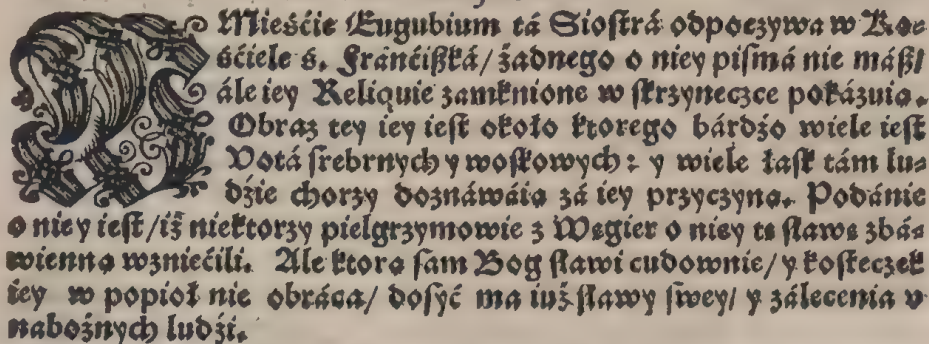 W Mieśćie Eugubium tá Siostrá odpoczywa w Koś
śćiele s. Fránćißká/ żadnego o niey pismá nie máß/
ále iey Reliquie zamknione w skrzyneczce pokázuią.
Obraz tey iey iest około ktorego bárdźo wiele iest
Votá srebrnych y woskowych: y wiele łask tám lu⸗
dźie chorzy doznáwáią zá iey przyczyną. Podánie
o niey iest/ iż niektorzy pielgrzymowie z Węgier o niey tę sławę zbá⸗
wienną wzniećili. Ale ktorą sam Bog sławi cudownie/ y kosteczek
iey w popioł nie obráca/ dosyć ma iuż sławy swey/ y zálecenia v
nabożnych ludźi.